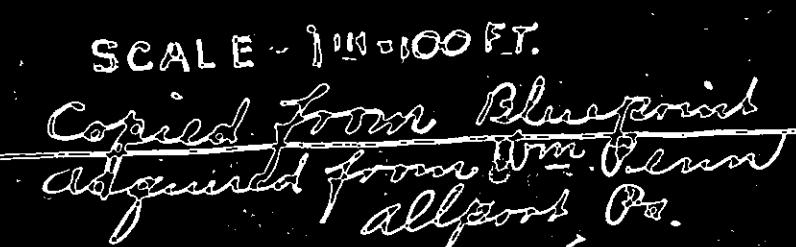 SCALE - 1 IN = 100 FT.
Copied from Blueprint
adquired from Wm. Penn
allport, Pa.